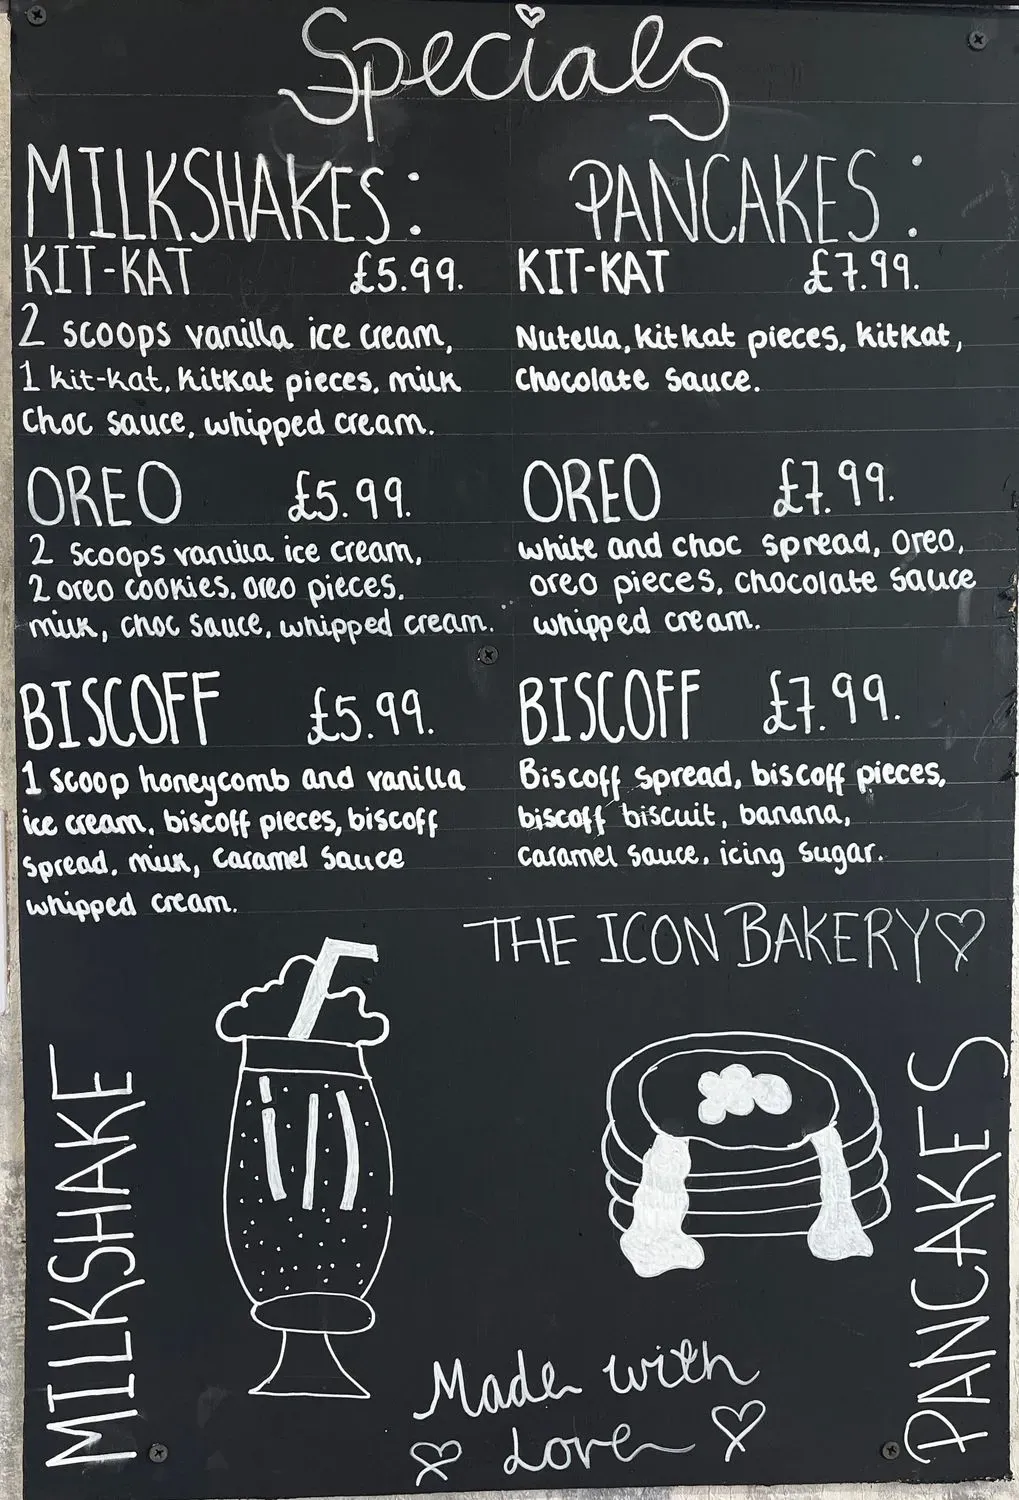 Specials
MILKSHAKES:
KIT-KAT £5.99.
2 scoops vanilla ice cream,
1 kit-kat, kitkat pieces, milk
choc sauce, whipped cream.
OREO £5.99.
2 scoops vanilla ice cream,
2 oreo cookies, oreo pieces,
milk, choc sauce, whipped cream.
BISCOFF £5.99.
1 scoop honeycomb and vanilla
ice cream, biscoff pieces, biscoff
spread, milk, caramel sauce
whipped cream.
PANCAKES:
KIT-KAT £7.99.
Nutella, kitkat pieces, kitkat,
chocolate sauce.
OREO £7.99.
white and choc spread, oreo,
oreo pieces, chocolate sauce
whipped cream.
BISCOFF £7.99.
Biscoff spread, biscoff pieces,
biscoff biscuit, banana,
caramel sauce, icing sugar.
THE ICON BAKERY♡
MILKSHAKE
PANCAKES
Made with
♡ Love ♡